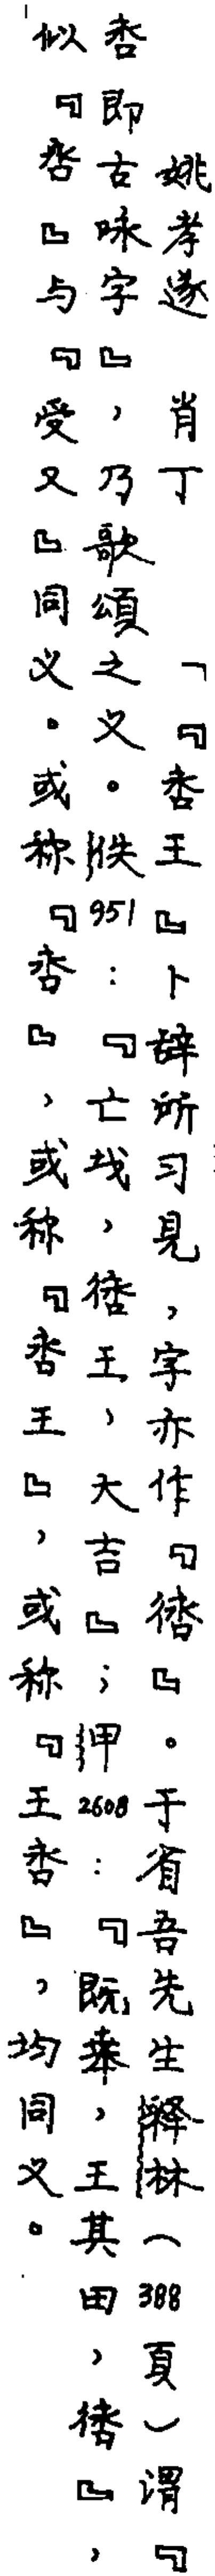 姚孝遂 肖丁 「『杏王』卜辞所习見,字亦作『』。于省吾先生释林(388頁)谓『
杏即古咏字』,乃歌頌之义。佚951:『亡𢦏,王,大吉』;押2608:『既桒,王其田,』,
似『杏』与『受又』同义。或称『杏』,或称『杏王』,或称『王杏』,均同义。